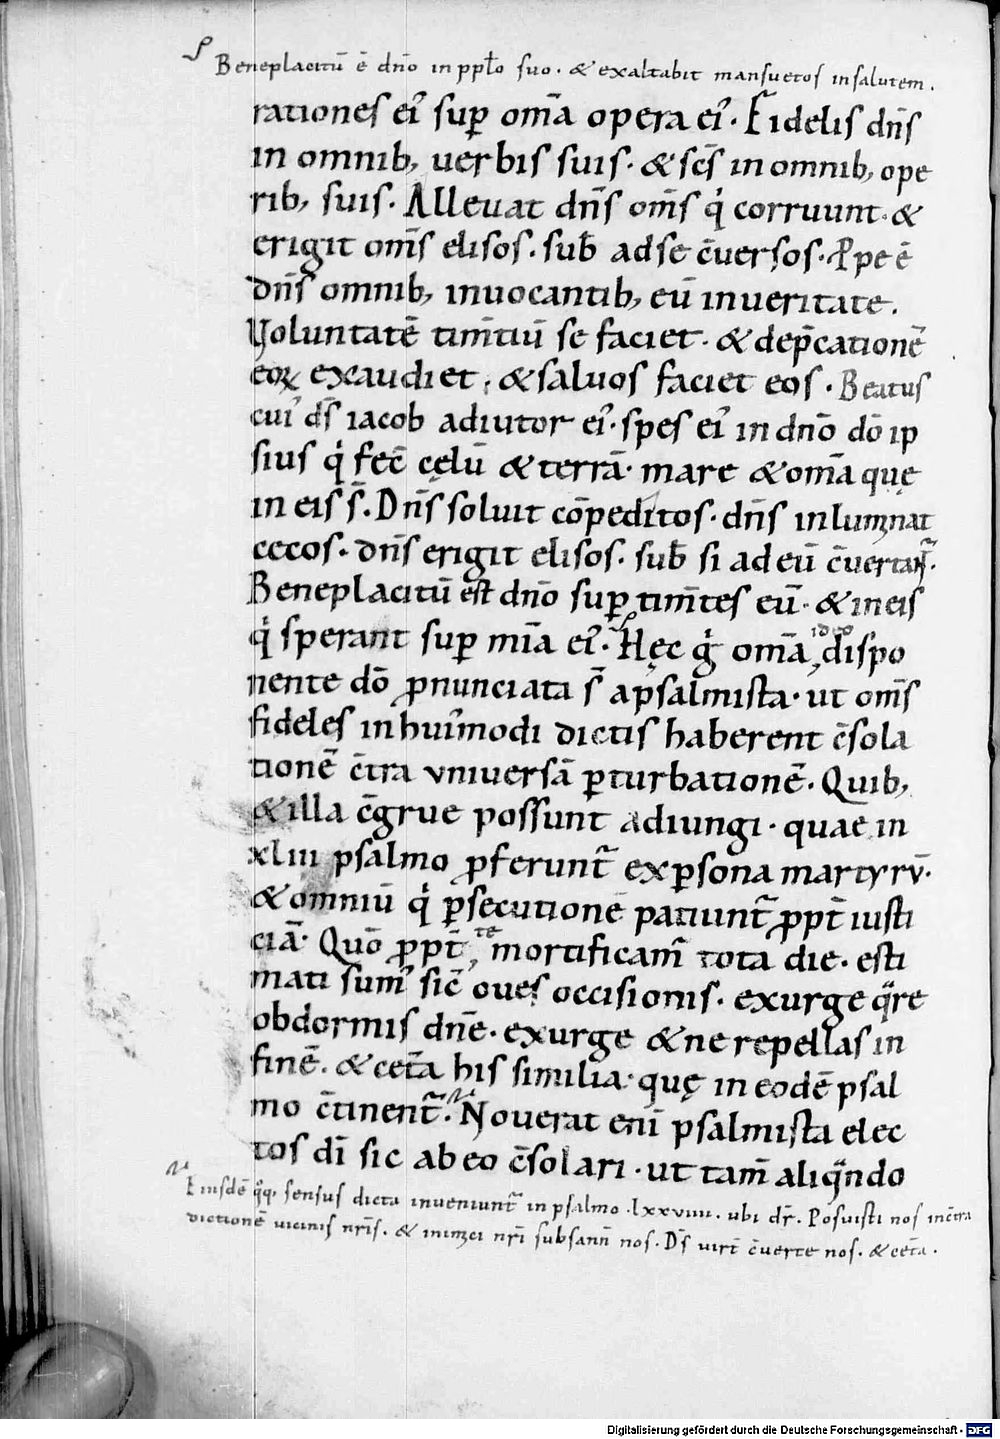 Beneplacitū ē dn̄o in ppło suo. & exaltabit mansuetos in salutem.
rationes ei᾽ sup̲ om̄a opera ei᾽. Fidelis dn̄s
in omnib; uerbis suis. & sc̄s in omnib; ope
rib; suis. Alleuat dn̄s om̄s q̇ corruunt. &
erigit om̄s elisos. sub̄ ad se c̄uersos. P̲pe ē
dn̄s omnib; inuocantib; eū in ueritate.
Voluntatē tim̄tiū se faciet. & dep̄cationē
eoꝝ exaudiet, & saluos faciet eos. Beatus
cui᾽ ds̄ iacob adiutor ei᾽. spes ei᾽ in dn̄o dō ip
sius q̇ fec̄ cęlū & terrā. mare & om̄a quę
in eis s̄. Dn̄s soluit cōpeditos. dn̄s inluminat
cecos. dn̄s erigit elisos. sub̄ si ad eū c̄uertant᷑.
Beneplacitū est dn̄o sup̲ tim̄tes eū. & in eis
q̇ sperant sup̲ mīa ei᾽. Hęc g̊ om̄a, ideo dispo
nente dō ꝓnunciata s̄ a psalmista. ut om̄s
fideles in hui᾽modi dictis haberent c̄sola
tionē c̄tra vniuersā ꝑturbationē. Quib;
& illa c̄grue possunt adiungi. quae in
xliii psalmo ꝓferunt᷑ ex ꝑsona martyrū.
& omniū q̇ ꝑsecutionē patiunt᷑ ꝓpt̄ iusti
ciā. Quō ꝓpt̄, te mortificam᷑ tota die. esti
mati sum᾽ sic̄ oues occisionis. exurge q̄re
obdormis dn̄e. exurge & ne repellas in
finē. & cet̄a his similia. quę in eodē psal
mo c̄tinent᷑. Nouerat enī psalmista elec
tos dī sic ab eo c̄solari. ut tam̄ aliq̄ndo
Eiusdē q̊q; sensus dicta inueniunt᷑ in psalmo .lxxviiii. ubi dr̄. Posuisti nos in c̄tra
dictionē uicinis nr̄is. & inimici nr̄i subsann̄ nos. Ds̄ uirt̄ c̄uerte nos. & cet̄a.
Digitalisierung gefördert durch die Deutsche Forschungsgemeinschaft - DFG